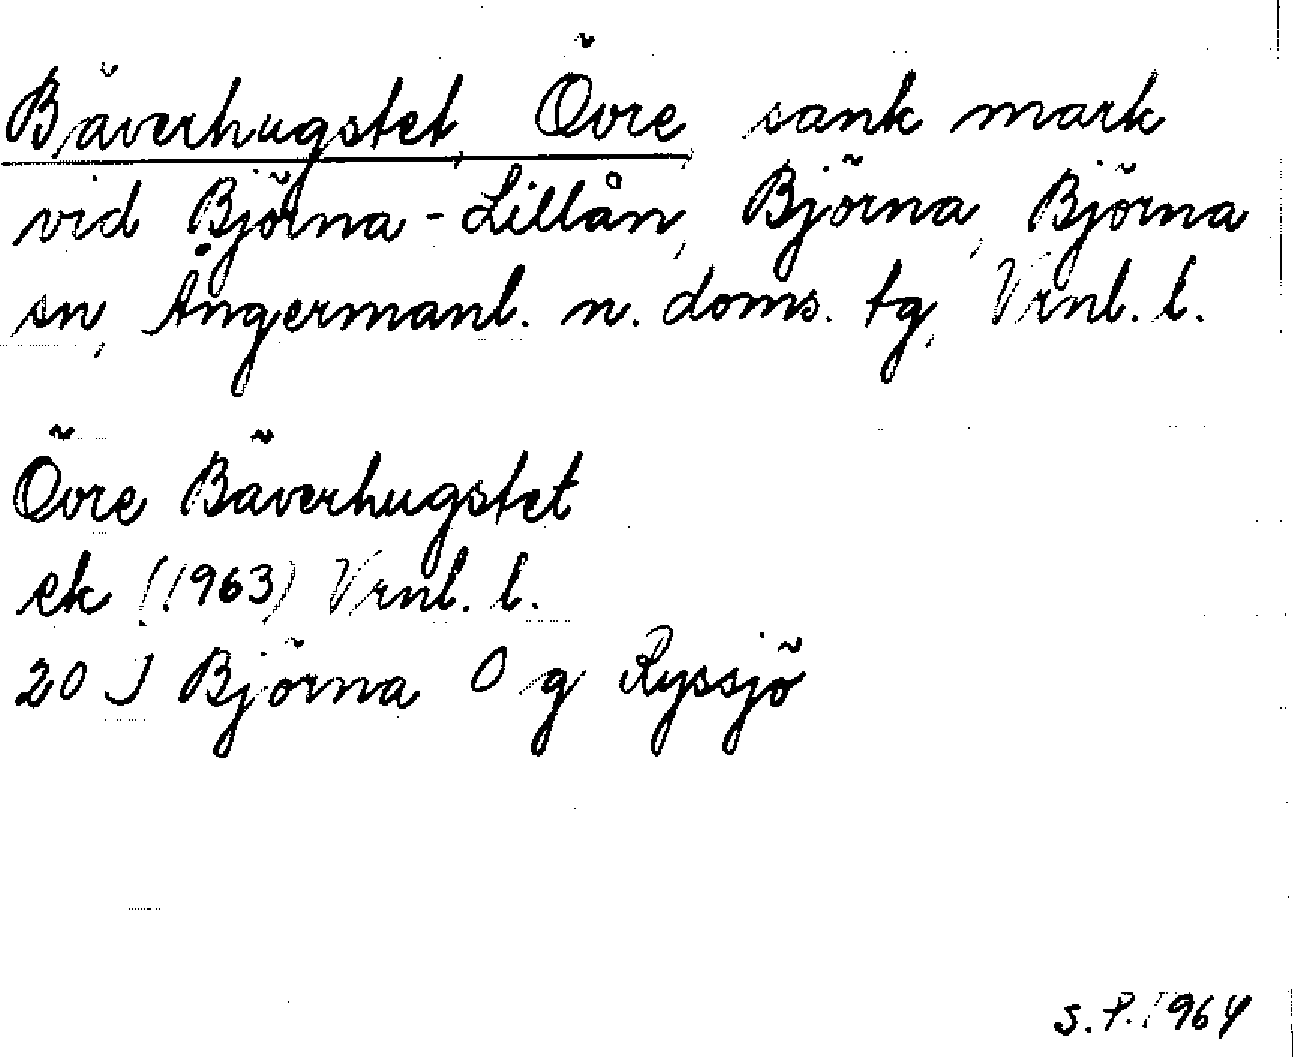 Bäverhugstet, Övre, sank mark
vid Björna-Lillån, Björna, Björna
sn, Ångermanl. n. doms. tg, Vrnl. l.
Övre Bäverhugstet
ek (1963) Vrnl. l.
20 J Björna O g Ryssjö
S.P. 1964